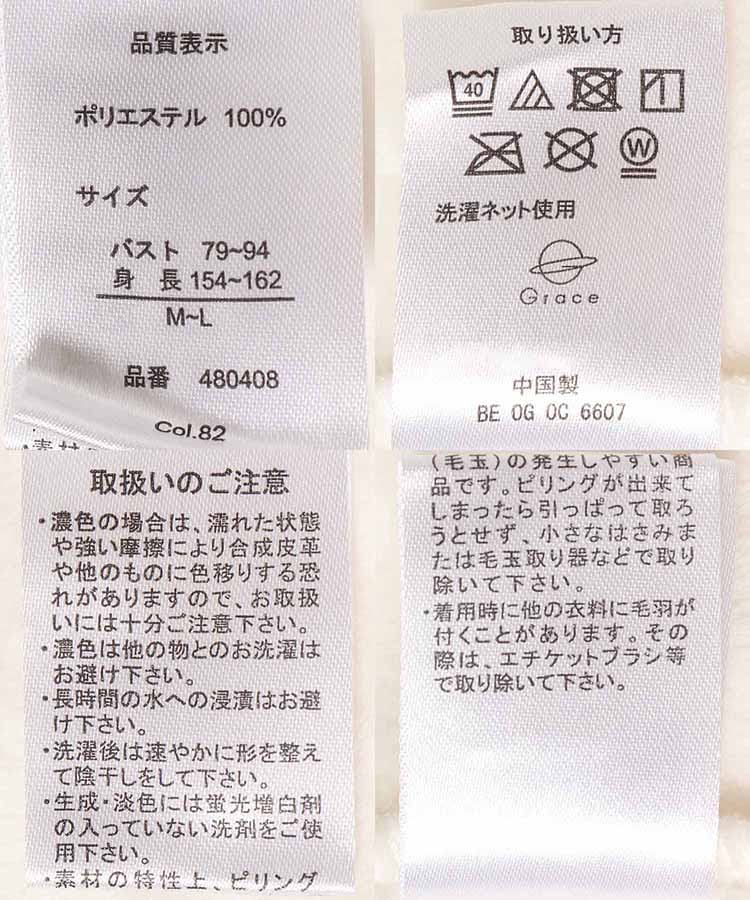 品質表示
ポリエステル 100%
サイズ
バスト 79~94
身 長 154~162
M~L
品番 480408
Col.82
・素材の
取り扱い方
40
W
洗濯ネット使用
Grace
中国製
BE OG OC 6607
取扱いのご注意
・濃色の場合は、濡れた状態
や強い摩擦により合成皮革
や他のものに色移りする恐
れがありますので、お取扱
いには十分ご注意下さい。
・濃色は他の物とのお洗濯は
お避け下さい。
・長時間の水への浸漬はお避
け下さい。
・洗濯後は速やかに形を整え
て陰干しをして下さい。
・生成・淡色には蛍光増白剤
の入っていない洗剤をご使
用下さい。
・素材の特性上、ピリング
(毛玉)の発生しやすい商
品です。ピリングが出来て
しまったら引っぱって取ろ
うとせず、小さなはさみま
たは毛玉取り器などで取り
除いて下さい。
・着用時に他の衣料に毛羽が
付くことがあります。その
際は、エチケットブラシ等
で取り除いて下さい。